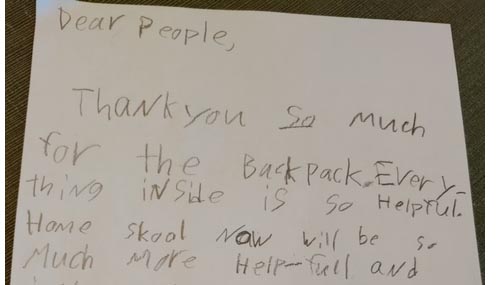 Dear People,
Thank you so much
for the Backpack. Every-
thing inside is so Helpful.
Home skool now will be so
Much More Help-full and